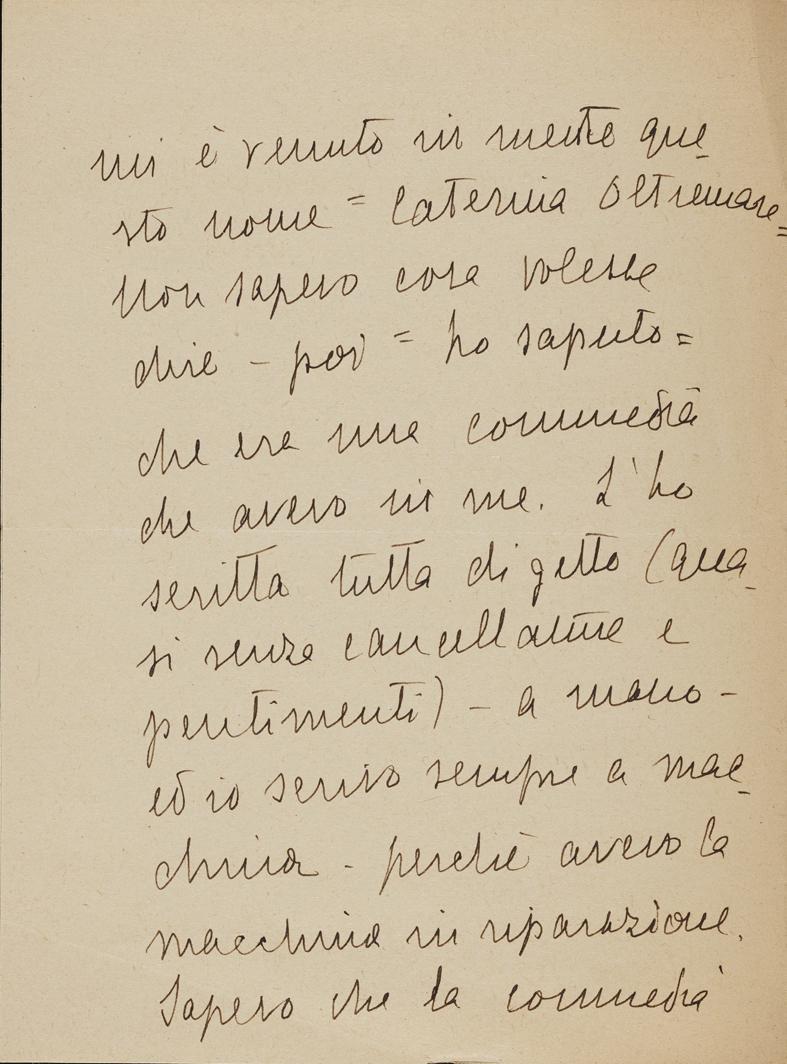 mi è venuto in mente que_
sto nome = Caterina Oltremare_=
Non sapevo cosa volesse
dire - poi = ho saputo=
che era una commedia
che avevo in me. L'ho
scritta tutta di getto (qua_
si senza cancellature e
pentimenti) - a mano -
ed io scrivo sempre a mac_
china - perchè avevo la
macchina in riparazione.
Sapevo che la commedia